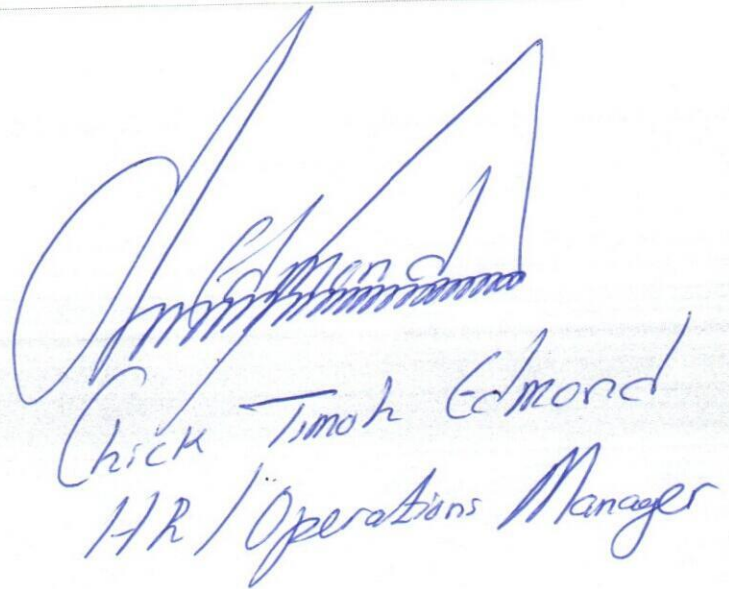 Edmond
Chick Timoh Edmond
HR / Operations Manager